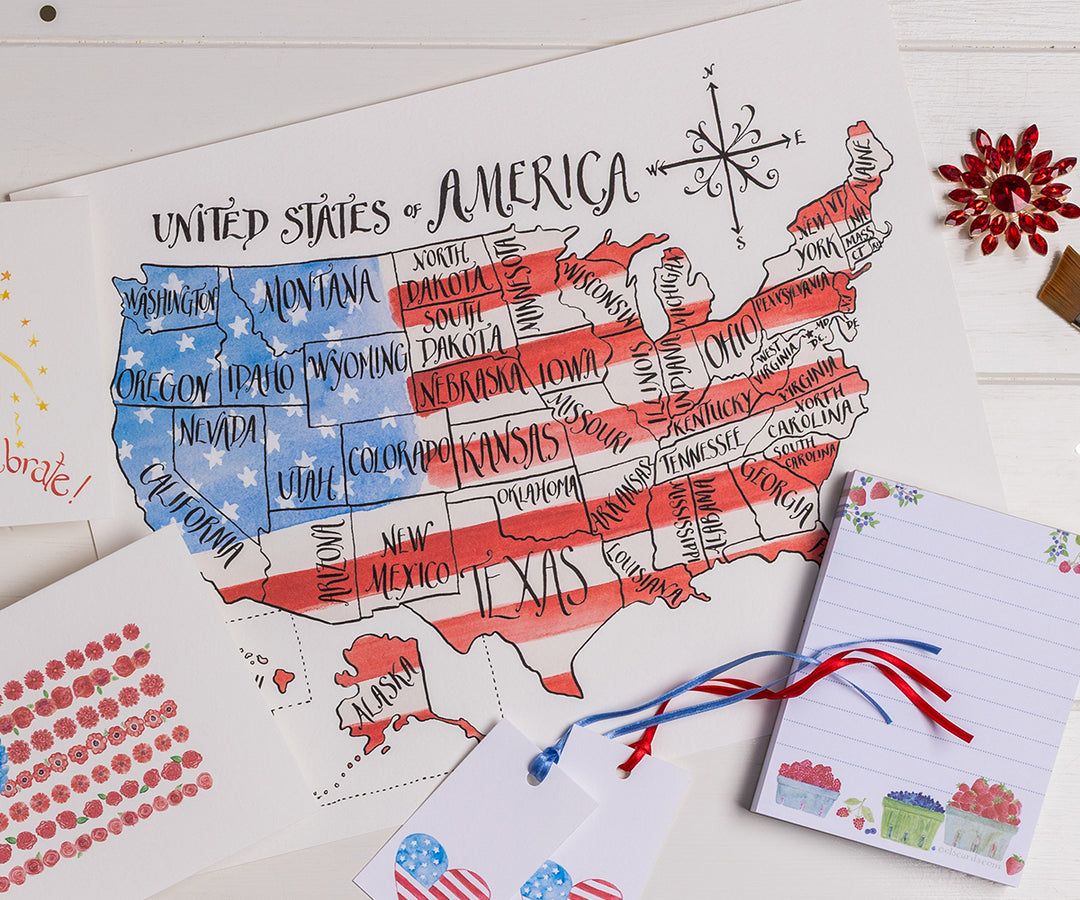 UNITED STATES OF AMERICA
N
W
E
S
WASHINGTON
MONTANA
NORTH
DAKOTA
MINNESOTA
WISCONSIN
MICHIGAN
MAINE
VT
NH
NEW
YORK
MASS
CT
OREGON
IDAHO
WYOMING
SOUTH
DAKOTA
NEBRASKA
IOWA
ILLINOIS
INDIANA
OHIO
PENNSYLVANIA
WEST
VIRGINIA
MD
DC
DE
VIRGINIA
NEVADA
UTAH
COLORADO
KANSAS
MISSOURI
KENTUCKY
NORTH
CAROLINA
TENNESSEE
SOUTH
CAROLINA
CALIFORNIA
ARIZONA
NEW
MEXICO
OKLAHOMA
ARKANSAS
MISSISSIPPI
ALABAMA
GEORGIA
TEXAS
LOUISIANA
ALASKA
brate!
©elscards.com